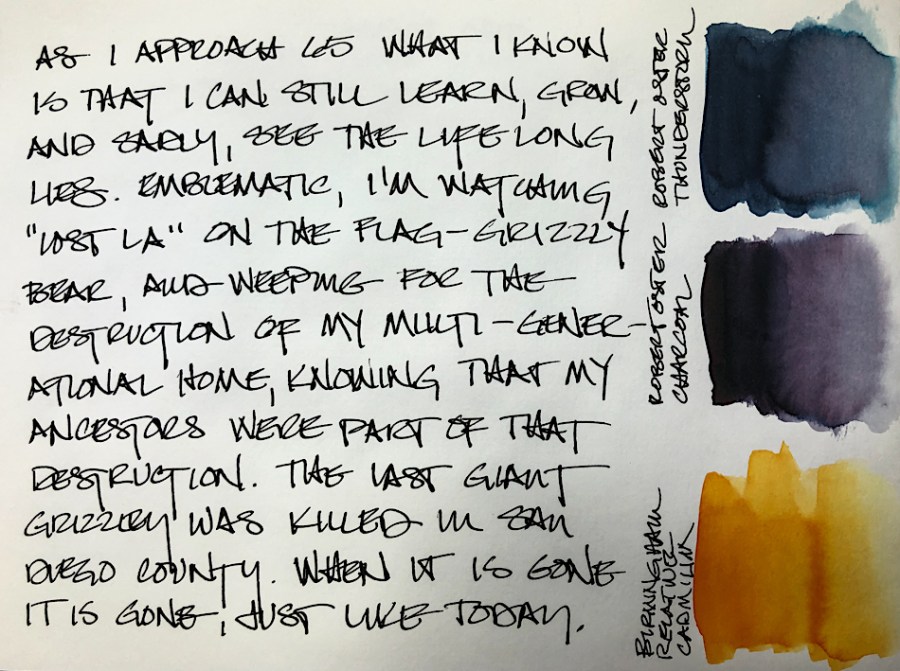 AS I APPROACH 65 WHAT I KNOW
IS THAT I CAN STILL LEARN, GROW,
AND SADLY, SEE THE LIFE LONG
LIES. EMBLEMATIC, I'M WATCHING
"LOST LA" ON THE FLAG-GRIZZLY
BEAR, AND WEEPING FOR THE
DESTRUCTION OF MY MULTI-GENER-
ATIONAL HOME, KNOWING THAT MY
ANCESTORS WERE PART OF THAT
DESTRUCTION. THE LAST GIANT
GRIZZLEY WAS KILLED IN SAN
DIEGO COUNTY. WHEN IT IS GONE
IT IS GONE, JUST LIKE TODAY.
ROBERT OSTER
THUNDERSTORM
ROBERT OSTER
CHARCOAL
BIRMINGHAM
RELATIVE
CADMIUM